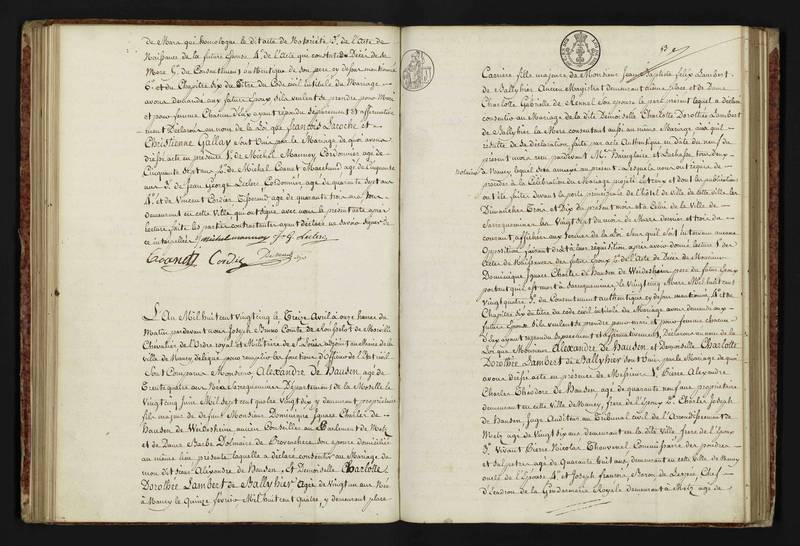 de Mars qui homologue le dit acte de Notoriété 3.° de l'Acte de
Naissance de la future Epouse 4.° de l'acte qui constate le Décès de sa
Mere 5.° du Consentement authentique de son pere ci dessus mentionné
6.° et du Chapitre six du Titre du Code civil intitulé du Mariage
avons demandé aux futurs Epoux s'ils veulent se prendre pour Mari
et pour femme Chacun d'eux ayant répondu séparément et affirmative
ment Déclarons au nom de la Loi que françois Laroche et
Christienne Gallay sont Unis par le Mariage de quoi avons
dressé acte en présence 1.° de Michel Mannoy Cordonnier agé de
Cinquante sept ans 2.° de Michel Marchand agé de Cinquante
ans 3.° de Jean George Leclerc Cordonnier agé de quarante sept ans
4.° et de Vincent Cordier agé de quarante trois ans, tous
demeurant en cette Ville qui ont signé avec nous le présent acte après
lecture faite les parties contractantes ayant déclaré ne savoir signer de
ce interpellées Michel mannoy J G Leclerc
Cordier
L'An Mil huit cent vingt cinq le Treize Avril à onze heures du
Matin pardevant nous Joseph Bruno Comte de Monfort
Chevalier de l'Ordre royal et Militaire de S.t Louis adjoint au Maire de la
Ville de Nancy délégué pour remplir les fonctions d'Officier de l'Etat civil
Sont Comparus Monsieur Alexandre de Hausen, agé de
Trente quatre ans Né à Sarreguemines Département de la Moselle le
Vingt cinq Juin Mil sept cent quatre Vingt dix y demeurant propriétaire
fils majeur de defunt Monsieur Dominique Ignace Charles de
Hausen de Weidesheim ancien Conseiller au Parlement de Metz
et de Dame Barbe Dolmaire de Provenchere son épouse domiciliée
au même lieu présente laquelle a déclaré consentir au Mariage de
mon dit sieur Alexandre de Hausen, Et Demoiselle Charlotte
Dorothée Lambert de Ballyhier Agée de Vingt un ans Née
à Nancy le Quinze fevrier Mil huit cent quatre, y demeurant place
Carriere fille majeure de Monsieur Jean Baptiste felix Lambert
de Ballyhier Ancien Magistrat demeurant même place et de Dame
Charlotte Gabrielle de Rennel son épouse le pere présent lequel a déclaré
consentir au Mariage de la dite Demoiselle Charlotte Dorothée Lambert
de Ballyhier la Mere consentant aussi au même Mariage ainsi qu'il
résulte de sa déclaration faite par acte Authentique en date du neuf du
présent mois reçu pardevant M.e et son Confrere tous deux
Notaires à Nancy lequel sera annexé au présent. Lesquels nous ont requis de
procéder à la Célébration du Mariage projeté entr'eux et dont les publications
ont été faites devant la porte principale de l'hôtel de Ville de cette Ville les
Dimanches Trois et Dix du présent mois et à Celle de la Ville de
Sarreguemines les Vingt sept du mois de Mars dernier et trois du
courant affichées aux termes de la Loi sans qu'il soit survenu aucune
Opposition faisant droit à leur réquisition après avoir donné lecture 1.° des
Actes de Naissance des futurs Epoux 2.° de l'Acte de Décès de Monsieur
Dominique Ignace Charles de Hausen de Weidesheim pere du futur Epoux
portant qu'il est mort à Sarreguemines le Vingt cinq Mars Mil huit cent
Vingt quatre 3.° du Consentement authentique cy dessus mentionné 4.° et du
Chapitre six du titre du code civil intitulé du Mariage avons demandé aux
futurs Epoux s'ils veulent se prendre pour mari et pour femme chacun
d'eux ayant répondu séparément et affirmativement, Déclarons au nom de la
Loi que Monsieur Alexandre de Hausen et Demoiselle Charlotte
Dorothée Lambert de Ballyhier sont Unis par le Mariage de quoi
avons dressé acte en présence de Messieurs 1.° Pierre Alexandre
Charles Théodore de Hausen, agé de quarante neuf ans propriétaire
demeurant en cette Ville de Nancy, frere de l'Epoux 2.° Charles Joseph
de Hausen, Juge Auditeur au Tribunal civil de l'Arrondissement de
Metz agé de Vingt six ans demeurant en la dite Ville frere de l'Epoux
3.° Vivant Pierre Nicolas Thouvenel Commissaire des poudres
et salpetres agé de Quarante huit ans, demeurant en cette Ville de Nancy
oncle de l'Epouse 4.° et Joseph francois, Baron de Lespée, Chef
d'Escadron de la Gendarmerie Royale demeurant à Metz agé de